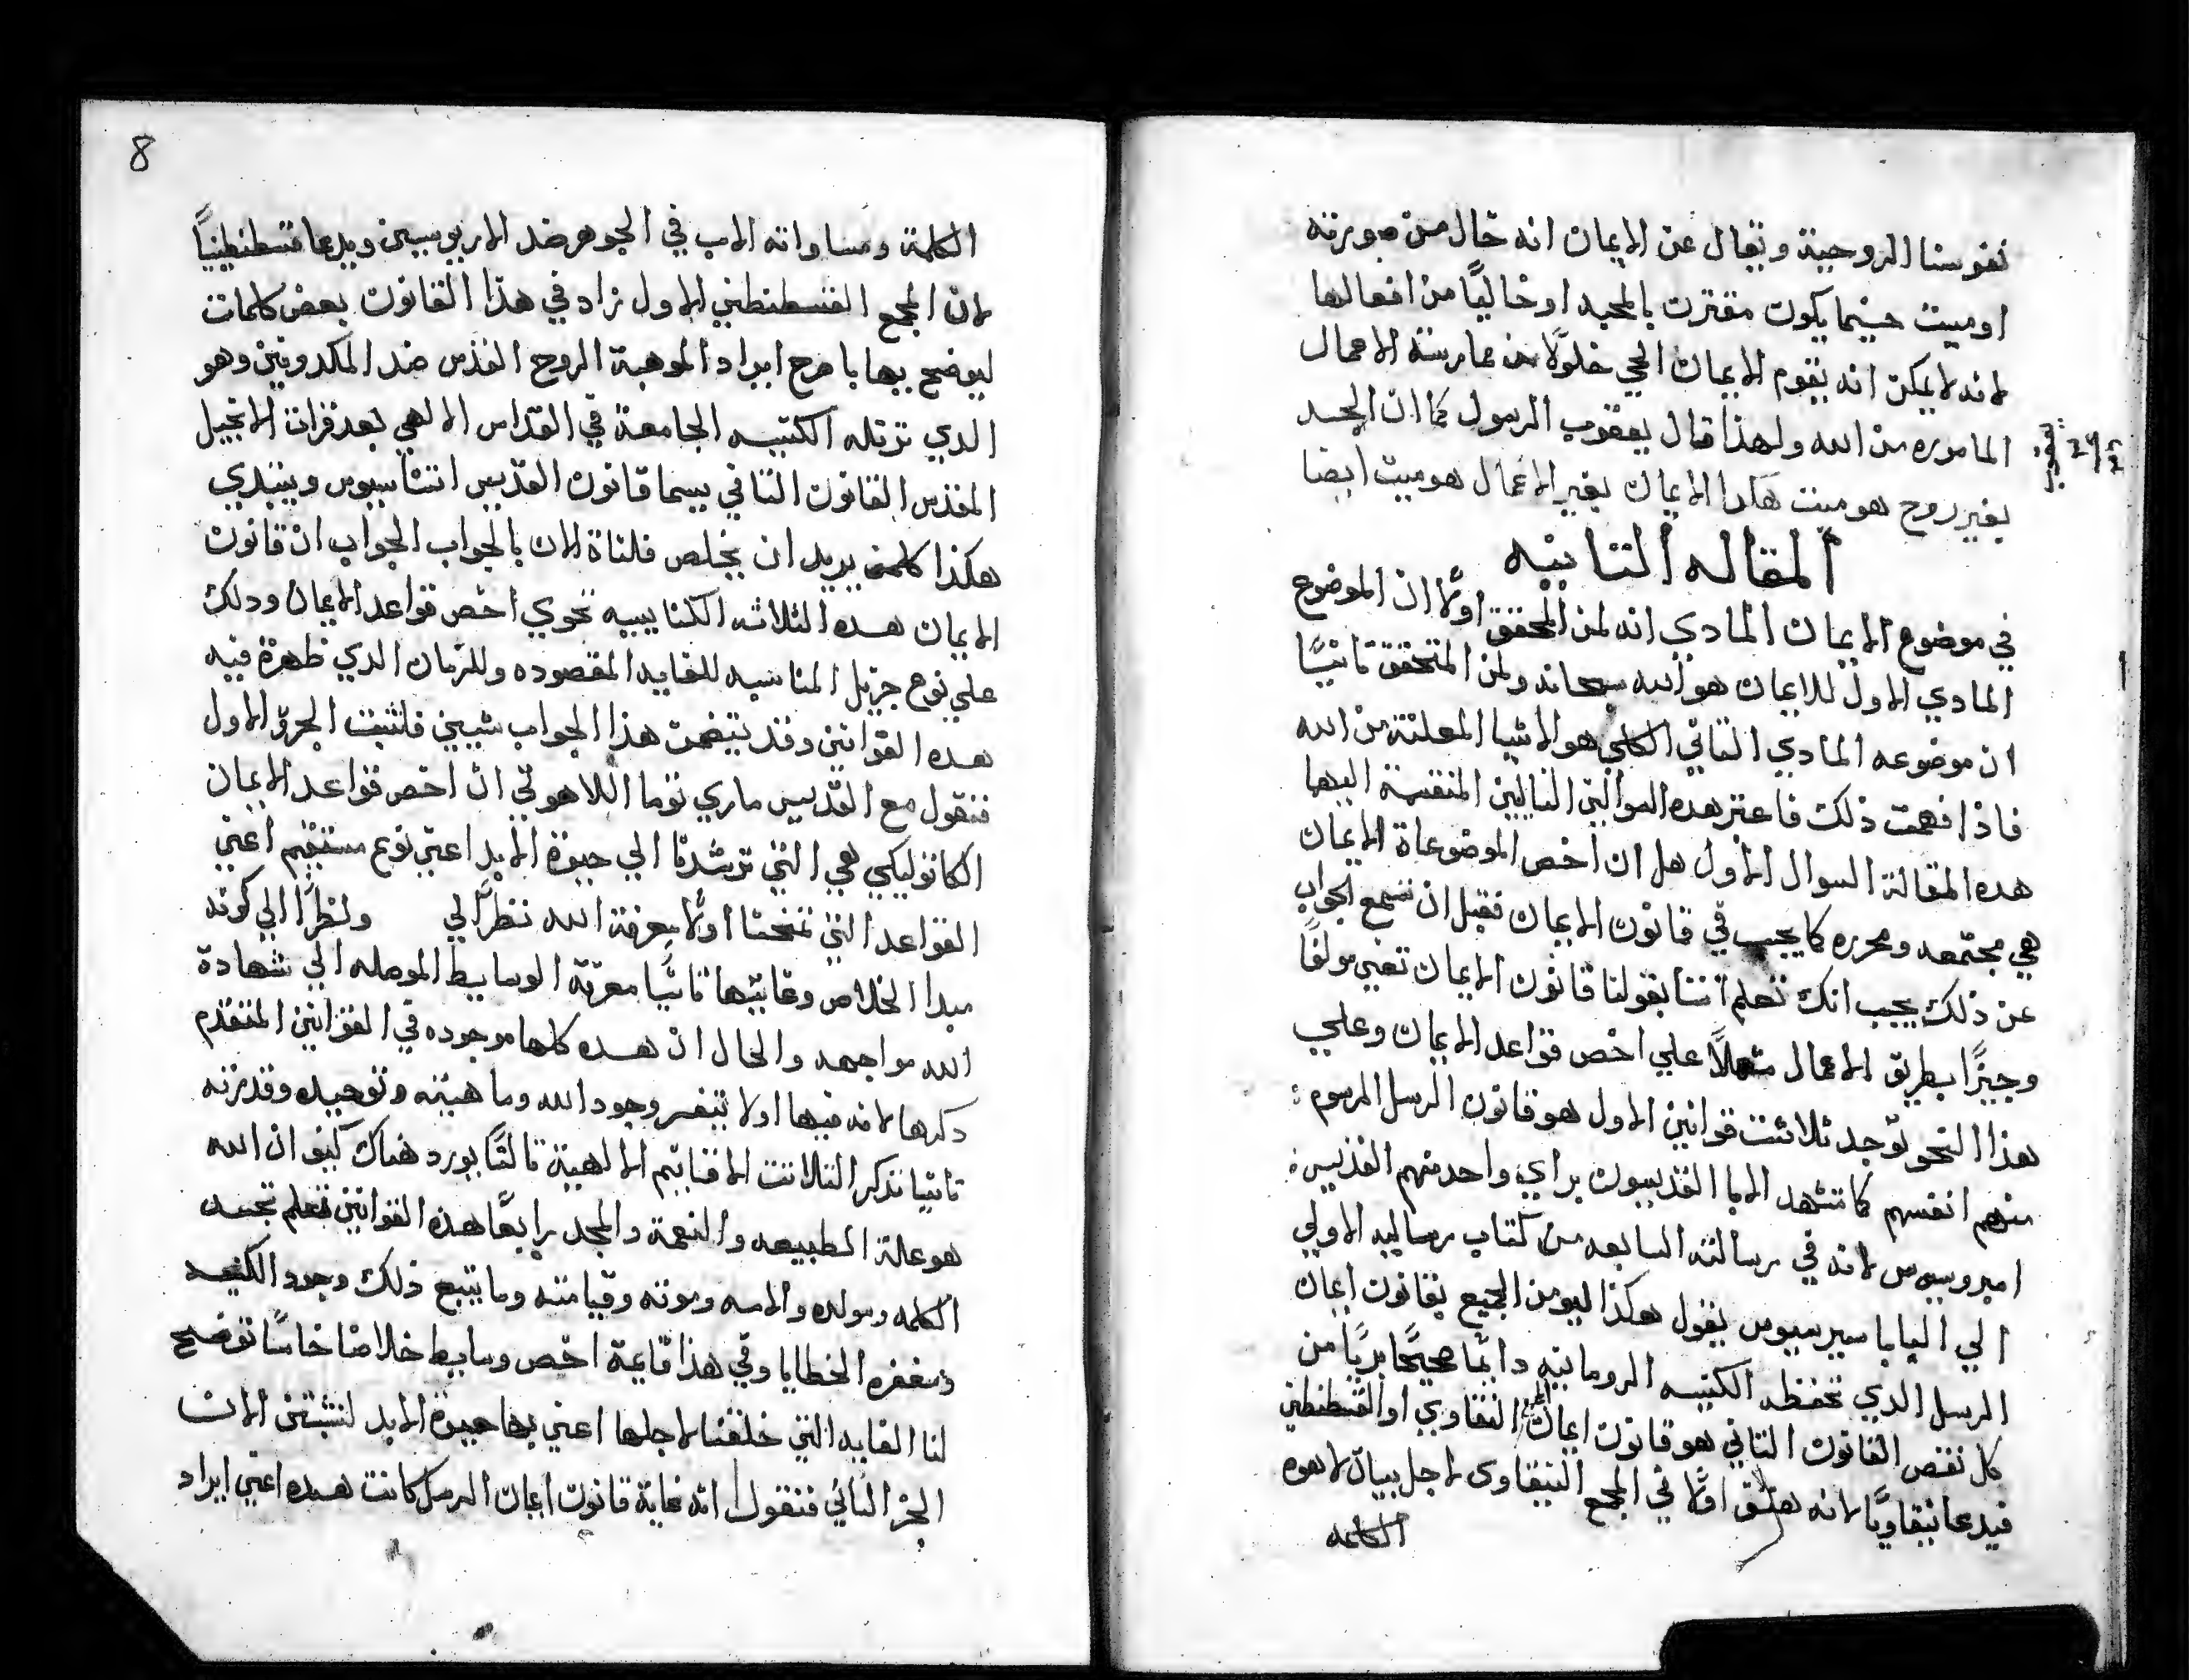 نفوسنا الروحية ويقال عن الايمان انه خال من صورته
او ميت حينما يكون مقترن بالمحبه او خاليًا من افعالها
لانه لا يمكن انه يقوم الايمان الحي خلوًا من ممارسة الاعمال
الماموره من الله ولهذا قال يعقوب الرسول كما ان الجسد
بغير روح هو ميت هكدا الايمان بغير الاعمال هو ميت ايضا
يعقوب
المقاله التانيه
في موضوع الايمان المادي انه لمن المحقق اولًا ان الموضوع
المادي الاول للايمان هو الله سبحانه ولمن المتحقق تانيًا
ان موضوعه المادي التاني الكلي هو الاشيا المعلنة من الله
فاذا فهمت ذلك فاعتبر هده السوالين التاليين المنقسمة اليها
هده المقالة السوال الاول هل ان اخص الموضوعاة الايمان
هي مجتمعه ومحرره كما يجب في قانون الايمان فقبل ان نسمع الجواب
عن ذلك يجب انك تعلم اننا بقولنا قانون الايمان نعني مولفًا
وجيزًا بطريق الاعمال مشملًا علي اخص قواعد الايمان وعلي
هذا النحو توجد ثلاثت قوانين الاول هو قانون الرسل المرسوم :
منهم انفسهم كما تشهد الابا القديسون براي واحد منهم القديس
امبروسيوس لانه في رسالته السابعه من كتاب رسايله الاولي
الي البابا سيرسيوس يقول هكذا ليومن الجميع بقانون ايمان
الرسل الدي تحفظه الكنيسه الرومانيه دايمًا صحيحًا بريًا من
كل نقص القانون التاني هو قانون ايمان المجمع النيقاوي او القسطنطيني
فيدعا نيقاويًا لانه اولًا في المجمع النيقاوى لاجل بيان لاهوه
الكلمه
8
الكلمة ومساواته الاب في الجوهر ضد الاريوسيين ويدعا قسطنطينيًا
لان المجمع القسطنطيني الاول زاد في هذا القانون بعض كلمات
ليوضح بها باصرح ايراد الوهية الروح القدس ضد المكدونين وهو
الدي ترتله الكنيسه الجامعة في القداس الالهي بعد قرات الانجيل
المقدس القانون التاني يسما قانون القديس اتناسيوس ويبتدي
هكذا كلمن يريد ان يخلص فلناة الان بالجواب الجواب ان قانون
الايمان هده الثلاثه الكنايسيه تحوي اخص قواعد الايمان ودلك
علي نوع جزيل المناسبه للغايه المقصوده وللزمان الدي ظهرة فيه
هده القوانين وقد يتضمن هذا الجواب شيين فلنثبت الجزو الاول
فنقول مع القديس ماري توما اللاهوتي ان اخص قواعد الايمان
الكاتوليكي هي التي ترشدنا الي حيوة الابد اعني نوع مستقيم اعني
القواعد التي تمنحنا اولًا معرفة الله نظرًا لي ونظرًا الي كونه
مبدا الخلاص وغايتها تانيًا معرفة الوسايط الموصله الي شهادة
الله مواجهه والحال ان هده كلها موجوده في القوانين المتقدم
دكرها لانه فيها اولا تنفسر وجود الله وماهيته وتوحيده وقدرته
تانيا تذكر التلاتت الاقانيم الالهية تالتًا يورد هناك كيف ان الله
هو علة الطبيعه والنعمة والمجد رابعًا هذه القوانين تعلم تجسد
الكلمه ومولده والامه وموته وقيامته وما يتبع ذلك وجود الكنيسه
ومغفره الخطايا وفي هذا قايمة اخص وسايط خلاصنا خامسًا توضح
لنا الغايه التي خلقنا لاجلها اعني بها حيوة الابد لنثبتن الان
الجز التاني فنقول انه غاية قانون ايمان الرسل كانت هده اعني ايراد